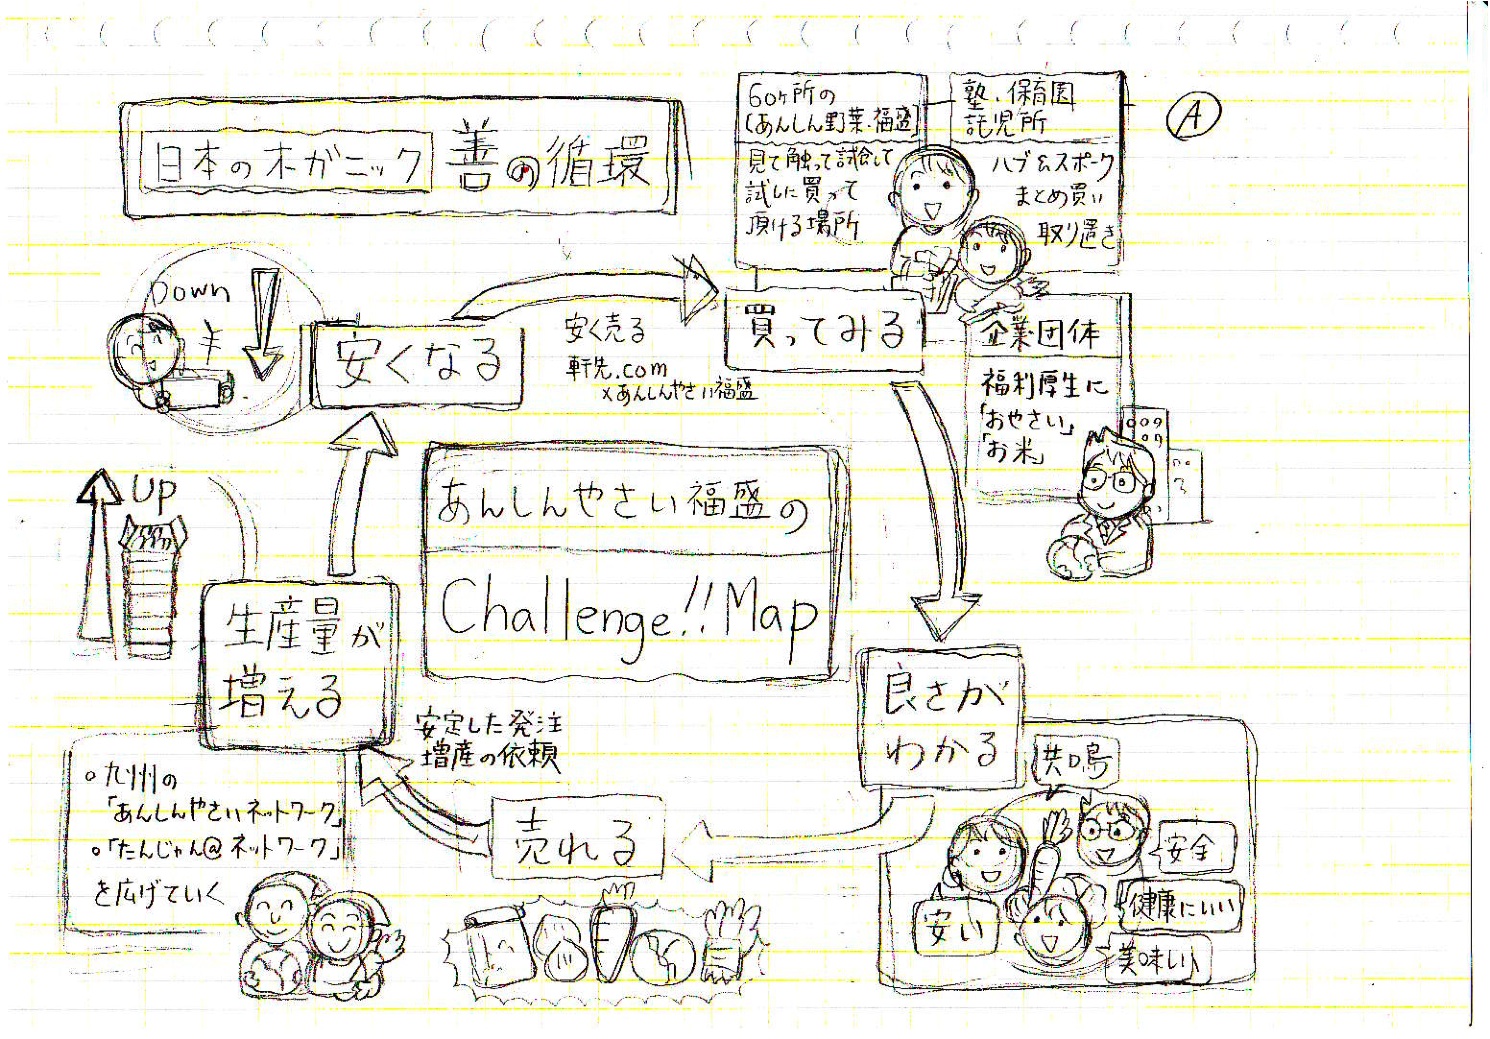 日本のオガニック 善の循環
60ヶ所の
(あんしん野菜・福盛)
見て触って試食して
試しに買って
頂ける場所
塾、保育園
託児所
ハブ&スポーク
まとめ買い
取り置き
A
Down
¥
安くなる
安く売る
軒先.com
×あんしんやさい福盛
買ってみる
企業団体
福利厚生に
「おやさい」
「お米」
UP
あんしんやさい福盛の
Challenge!! Map
生産量が
増える
安定した発注
増産の依頼
良さが
わかる
共鳴
安全
健康にいい
美味しい
安い
売れる
○九州の
「あんしんやさいネットワーク」
○「たんじゃん@ネットワーク」
を広げていく